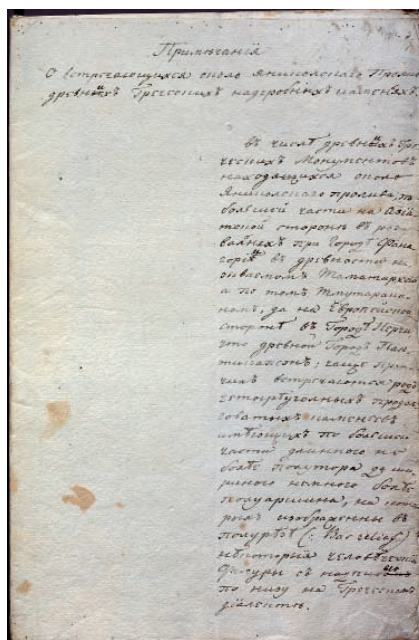 Примѣчанія
О встрѣчающихся около Яникольскаго Проли
древнихъ Греческихъ надгробныхъ камняхъ.
Въ числѣ древнихъ Гре
ческихъ Монументовъ
находящихся около
Яникольскаго пролива, по
большей части на Азій
ской сторонѣ въ раз
валинахъ при Городѣ Фана
горіи въ древности на
зываемомъ Таматарха
а по томъ Тмутарака
номъ, да на Европейской
сторонѣ въ Городѣ Керчи
что древной Городъ Пан
тикапеонъ; чаще проч
чихъ встрѣчаются родъ
четыреугольныхъ продол
говатыхъ каменьевъ
имѣющихъ по большей
части длинного не
болѣе полутора, а ши
риного немного болѣе
полуаршина, на кото
рыхъ изображенны въ
полурѣѣ (: Bas relief :)
нѣкоторыя человѣческія
фигуры съ
по низу на Греческомъ
діалектѣ.